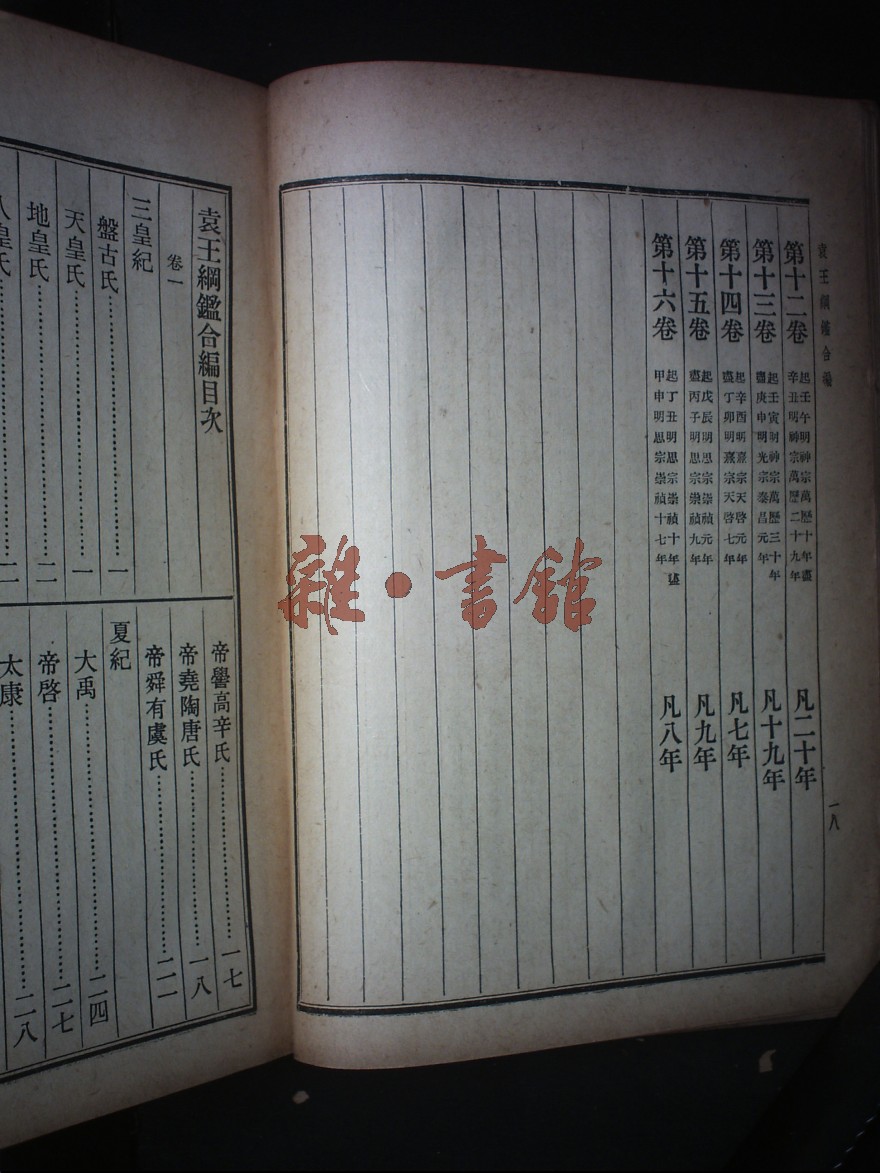 袁王綱鑑合編
一八
第十二卷 起壬午明神宗萬歷十年盡辛丑明神宗萬歷二十九年 凡二十年
第十三卷 起壬寅明神宗萬歷三十年盡庚申明光宗泰昌元年 凡十九年
第十四卷 起辛酉明熹宗天啓元年盡丁卯明熹宗天啓七年 凡七年
第十五卷 起戊辰明思宗崇禎元年盡丙子明思宗崇禎九年 凡九年
第十六卷 起丁丑明思宗崇禎十年盡甲申明思宗崇禎十七年 凡八年
雜·書館
袁王綱鑑合編目次
卷一
三皇紀
盤古氏 一
天皇氏 一
地皇氏 二
人皇氏 二
帝嚳高辛氏 一七
帝堯陶唐氏 一八
帝舜有虞氏 二一
夏紀
大禹 二四
帝啓 二七
太康 二八